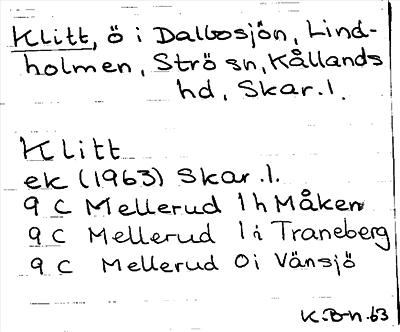 Klitt, ö i Dalbosjön, Lind-
holmen, Strö sn, Kållands
hd, Skar. l.
Klitt
ek (1963) Skar. l.
9 C Mellerud 1 h Måken
9 C Mellerud 1 i Traneberg
9 C Mellerud 0 i Vänsjö
K.B-n. 63